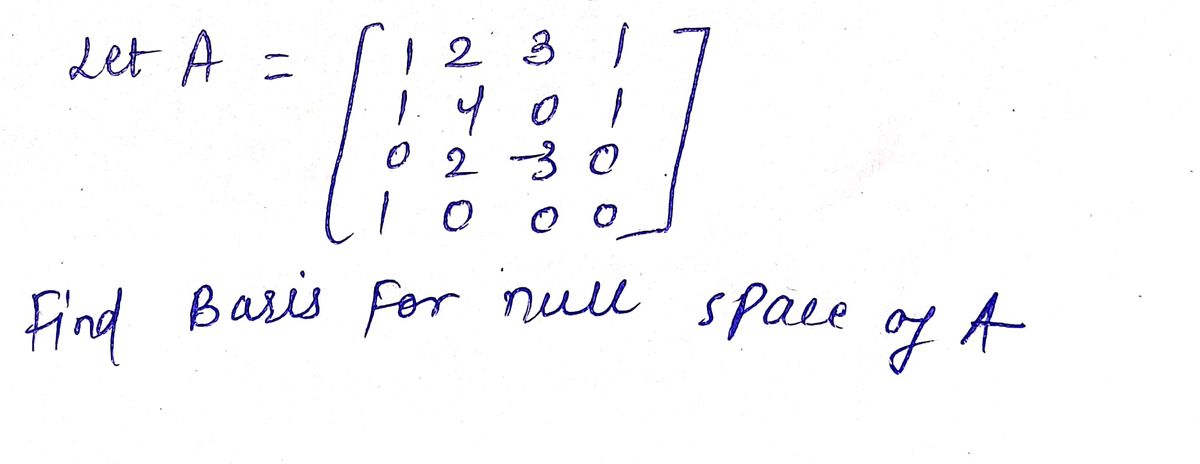 Let A = [1 2 3 1
1 4 0 1
0 2 -3 0
1 0 0 0]
Find Basis For null space of A